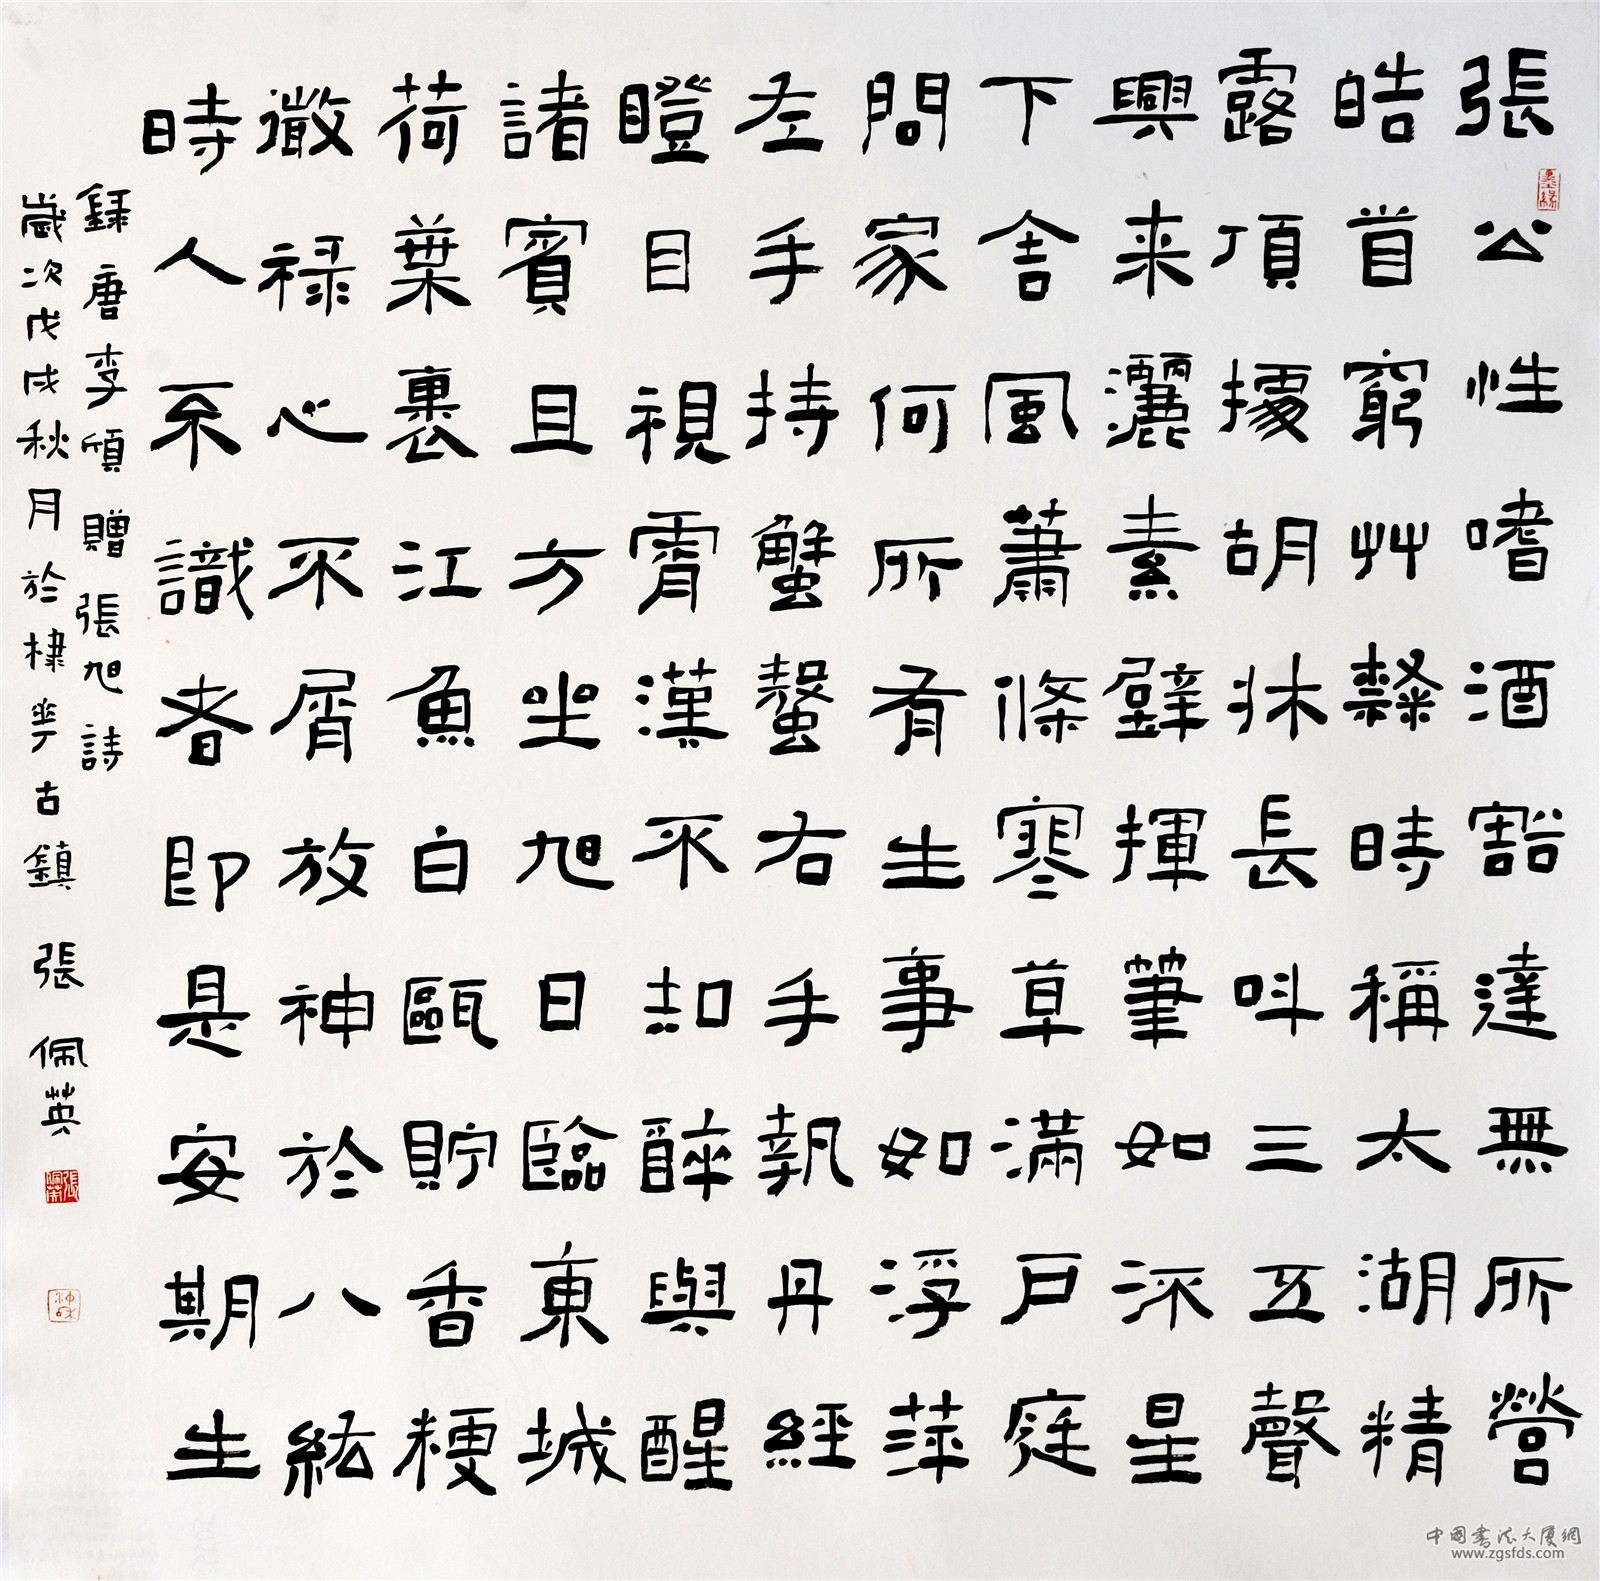 張公性嗜酒豁達無所營
皓首窮艸隸時稱太湖精
露頂據胡牀長呌三五聲
興来灑素壁揮筆如流星
下舍風蕭條寒草滿戶庭
問家何所有生事如浮萍
左手持蟹螯右手執丹經
瞪目視霄漢不知醉與醒
諸賓且方坐旭日臨東城
荷葉裹江魚白甌貯香粳
微祿心不屑放神於八紘
時人不識者即是安期生
錄唐李頎贈張旭詩
歲次戊戌秋月於棣華古鎮 張佩英
中國書法大廈網
www.zgsfds.com